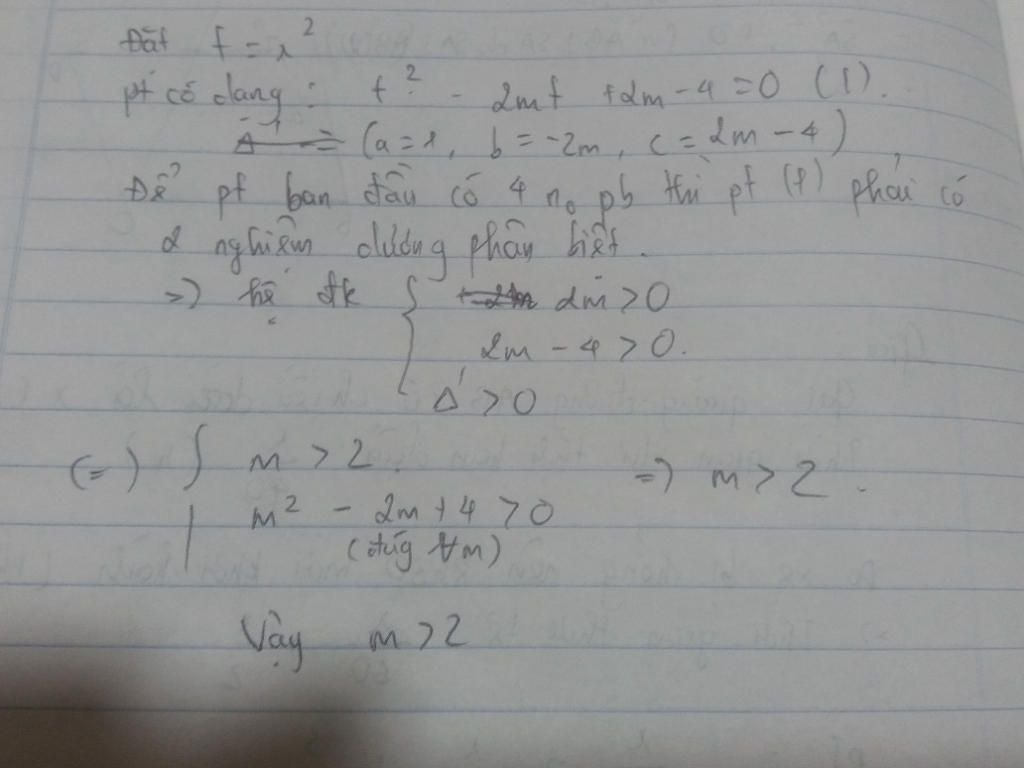 Đặt t = x²
pt có dạng : t² - 2mt + 2m - 4 = 0 (1).
(a = 1, b = -2m, c = 2m - 4)
Để pt ban đầu có 4 n₀ pb thì pt (1) phải có
2 nghiệm dương phân biệt.
=> hệ đk { 2m > 0
2m - 4 > 0.
Δ' > 0
(=) { m > 2. => m > 2.
m² - 2m + 4 > 0
(đúg ∀m)
Vậy m > 2